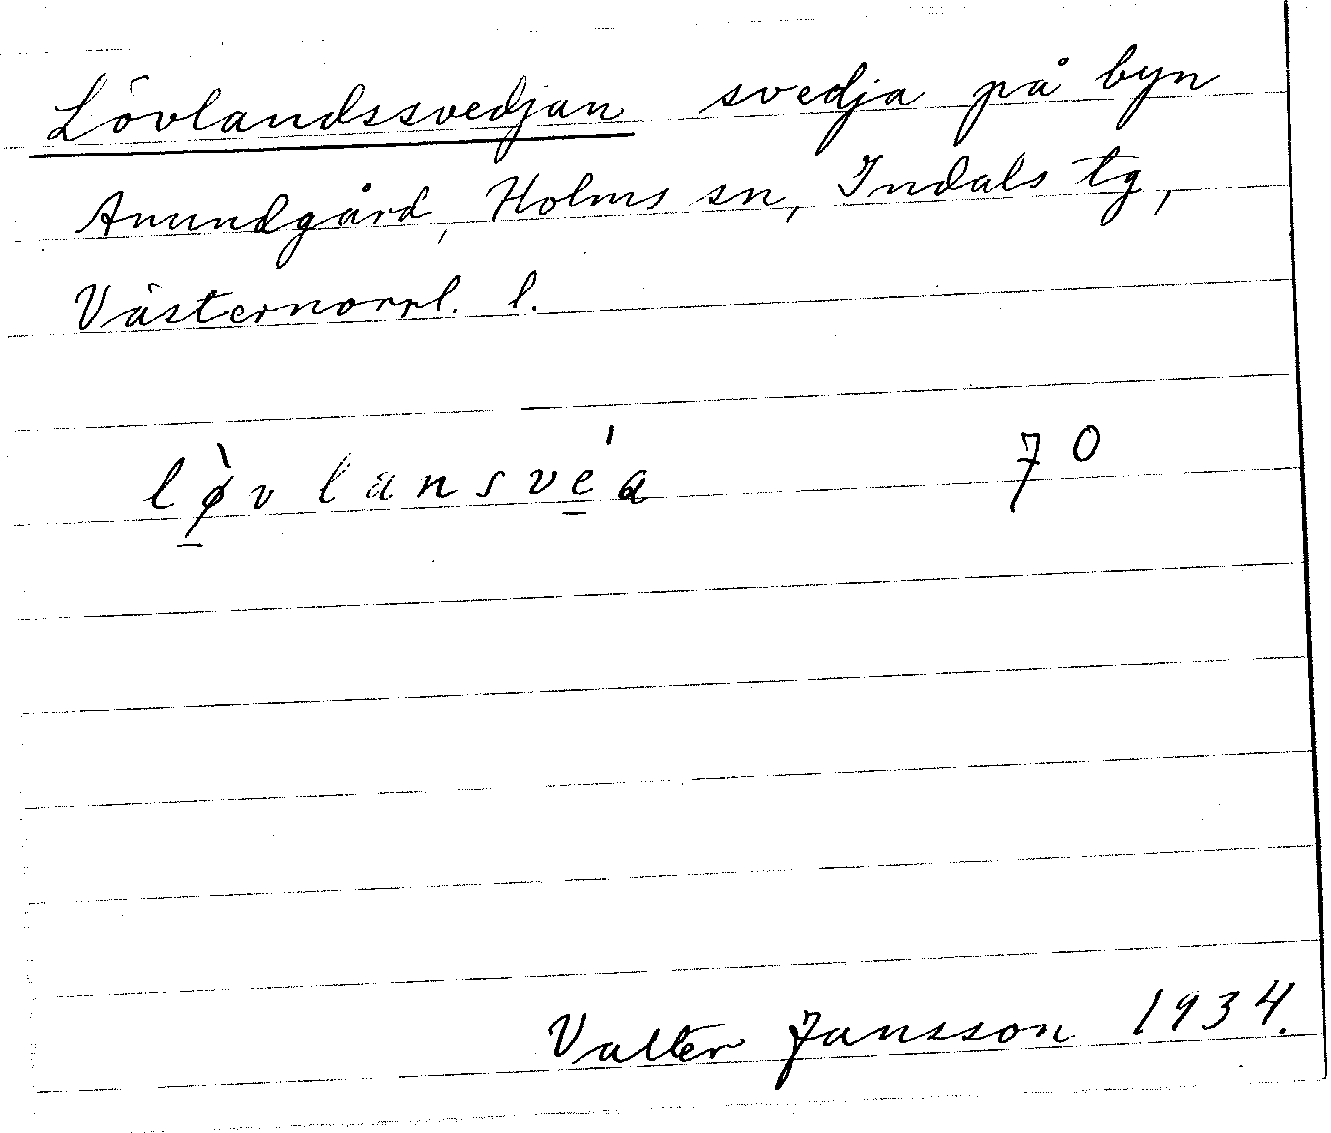 Lövlandssvedjan svedja på byn
Anundgård, Holms sn, Indals tg,
Västernorrl. l.
lø̀vlansvéa 70
Valter Jansson 1934.